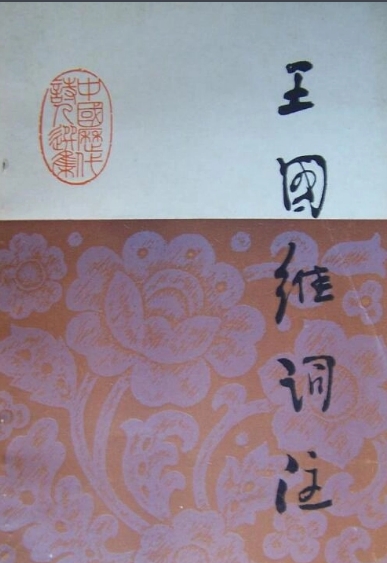 王國维词注
中國歷代
詩人選集